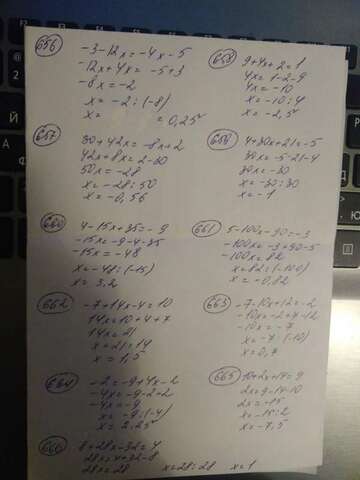 656
-3-12x=-4x-5
-12x+4x=-5+3
-8x=-2
x=-2:(-8)
x= =0,25
658
9+4x+2=1
4x=1-2-9
4x=-10
x=-10:4
x=-2,5
657
30+42x=-8x+2
42x+8x=2-30
50x=-28
x=-28:50
x=-0,56
659
4+30x+21=-5
30x=-5-21-4
30x=-30
x=-30:30
x=-1
660
4-15x+35=-9
-15x=-9-4-35
-15x=-48
x=-48:(-15)
x=3,2
661
5-100x-90=-3
-100x=-3+90-5
-100x=82
x=82:(-100)
x=-0,82
662
-7+14x-4=10
14x=10+4+7
14x=21
x=21:14
x=1,5
663
-7-10x+12=-2
-10x=-2+7-12
-10x=-7
x=-7:(-10)
x=0,7
664
-2=-9+4x-2
-4x=-9-2+2
-4x=-9
x=-9:(-4)
x=2,25
665
10+2x+14=9
2x=9-14-10
2x=-15
x=-15:2
x=-7,5
666
8+28x-32=4
28x=4+32-8
28x=28 x=28:28 x=1